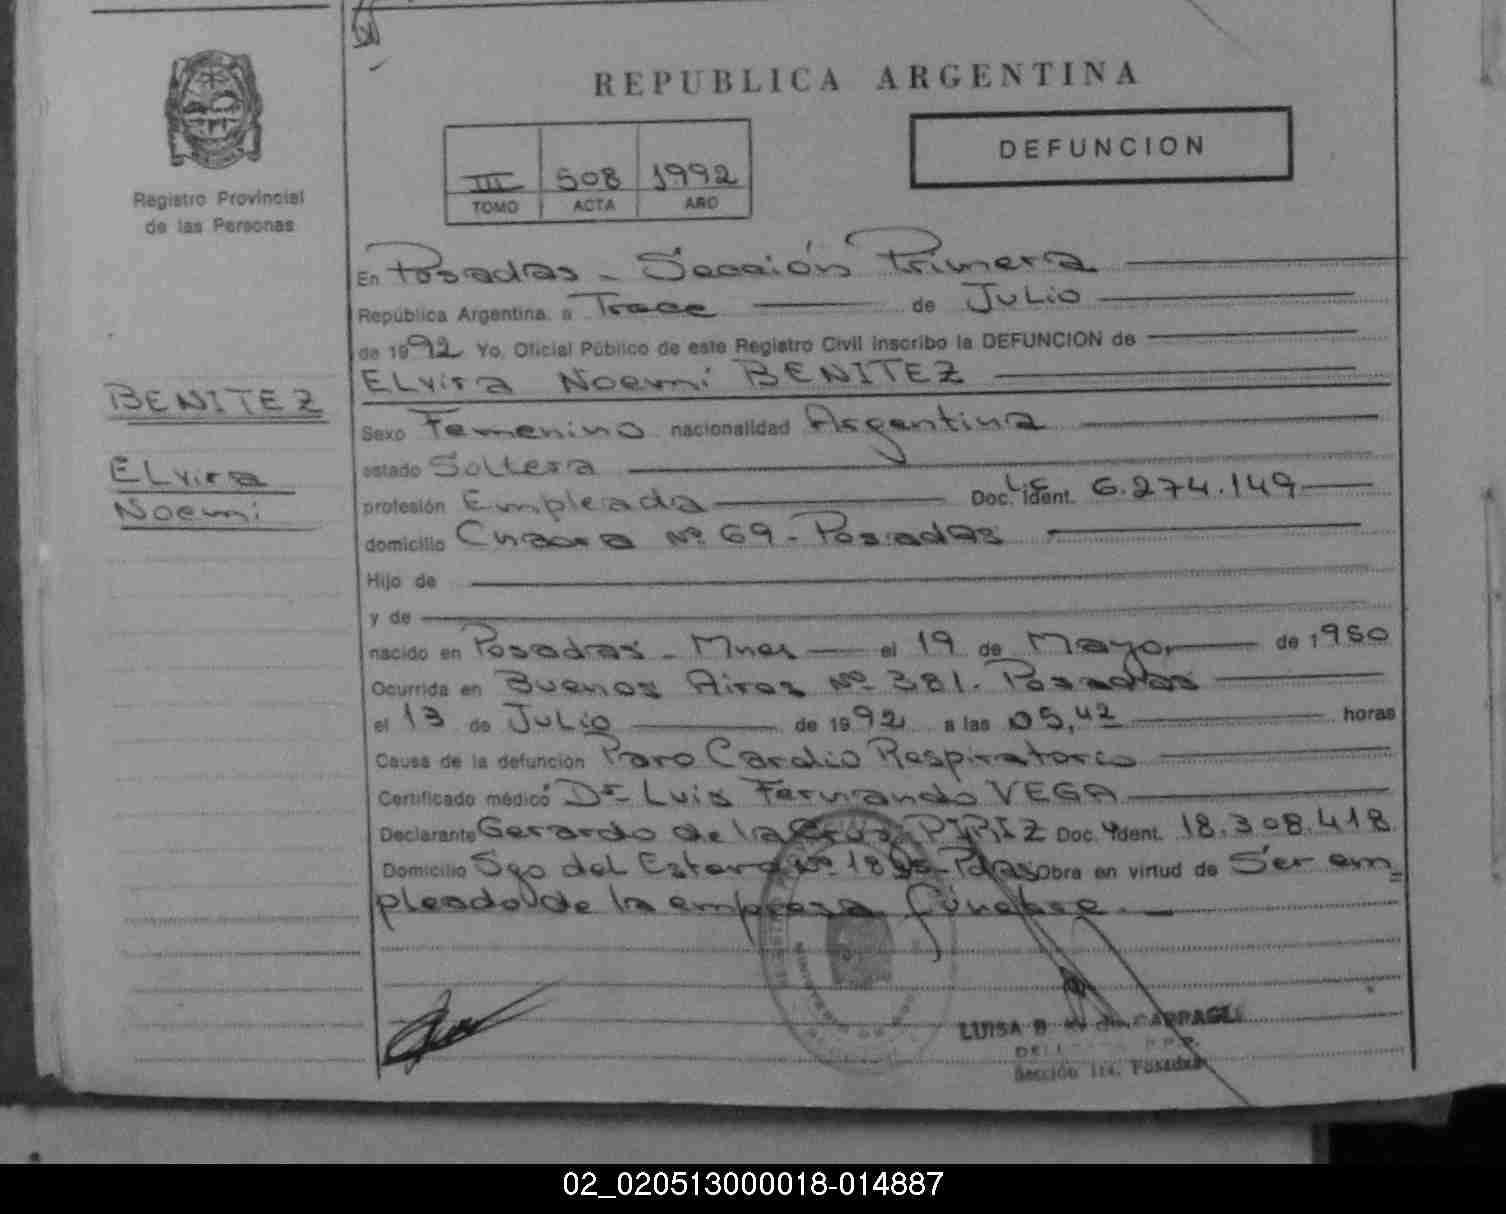 REPUBLICA ARGENTINA
DEFUNCION
III 508 1992
TOMO ACTA AÑO
Registro Provincial
de las Personas
BENITEZ
ELvira
Noemi
En Posadas - Sección Primera
República Argentina, a Trece de Julio
de 1992 Yo, Oficial Público de este Registro Civil inscribo la DEFUNCION de
ELvira Noemi BENITEZ
Sexo Femenino nacionalidad Argentina
estado Soltera
profesión Empleada Doc. L.C. Ident. 6.274.149
domicilio Nº 69 - Posadas
Hijo de
y de
nacido en Posadas - Mnes el 19 de Mayo de 1950
Ocurrida en Buenos Aires Nº 381. Posadas
el 13 de Julio de 1992 a las 05,42 horas
Causa de la defunción Paro Cardio Respiratorio
Certificado médico Dr Luis Fernando VEGA
Declarante Gerardo de la Cruz PIRIZ Doc. Ident. 18.308.418
Domicilio Sgo del Estero Nº Pdas Obra en virtud de Ser em=
pleado de la empresa fúnebre.-
LUISA B.
Sección 1ra. Posadas
02_020513000018-014887